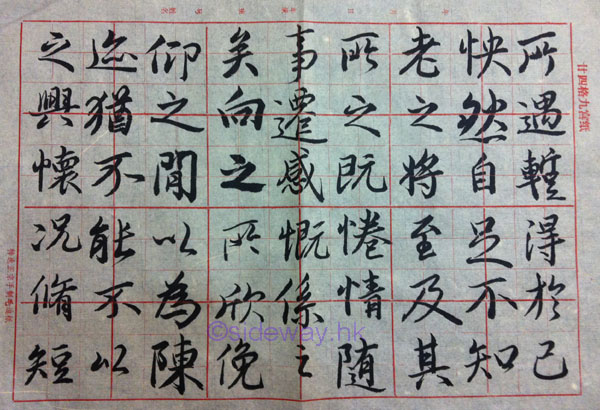 所遇暫得於己
怏然自足不知
老之將至及其
所之既惓情隨
事遷感慨係之
矣向之所欣俛
仰之閒以為陳
迹猶不能不以
之興懷況脩短
廿四格九宮紙
©sideway.hk